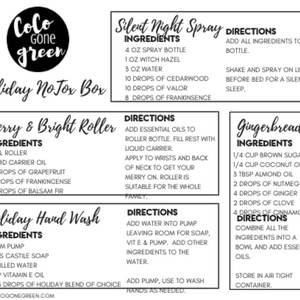 CoLo
GONE
green
liday NoTox Box
Silent Night Spray
INGREDIENTS
4 OZ SPRAY BOTTLE
1 OZ WITCH HAZEL
3 OZ WATER
10 DROPS OF CEDARWOOD
10 DROPS OF VALOR
8 DROPS OF FRANKINSENCE
DIRECTIONS
ADD ALL INGREDIENTS TO
BOTTLE.
SHAKE AND SPRAY ON LI
BEFORE BED FOR A SILEN
SLEEP.
erry & Bright Roller
GREDIENTS
L ROLLER
ID CARRIER OIL
ROPS OF GRAPEFRUIT
ROPS OF FRANKINCENSE
ROPS OF BALSAM FIR
DIRECTIONS
ADD ESSENTIAL OILS TO
ROLLER BOTTLE, FILL REST WITH
LIQUID CARRIER.
APPLY TO WRISTS AND BACK
OF NECK TO GET YOUR
MERRY ON. ROLLER IS
SUITABLE FOR THE WHOLE
FAMILY.
Gingerbread
INGREDIENTS
1/4 CUP BROWN SUGA
1/4 CUP COCONUT O
3 TBSP ALMOND OIL
2 DROPS OF NUTMEG
4 DROPS OF GINGER
2 DROPS OF CLOVE
4 DROPS OF CINNAMO
DIRECTIONS
COMBINE ALL THE
INGREDIENTS INTO A
BOWL AND ADD ESSE
OILS.
STORE IN AIR TIGHT
CONTAINER.
liday Hand Wash
GREDIENTS
M PUMP
S CASTILE SOAP
ILLED WATER
P VITAMIN E OIL
DROPS OF HOLIDAY BLEND OF CHOICE
DIRECTIONS
ADD WATER INTO PUMP
LEAVING ROOM FOR SOAP,
VIT E PUMP. ADD OTHER
INGREDIENTS TO THE
WATER.
ADD PUMP, USE TO WASH
HANDS AS NEEDED.
OGONEGREEN.COM